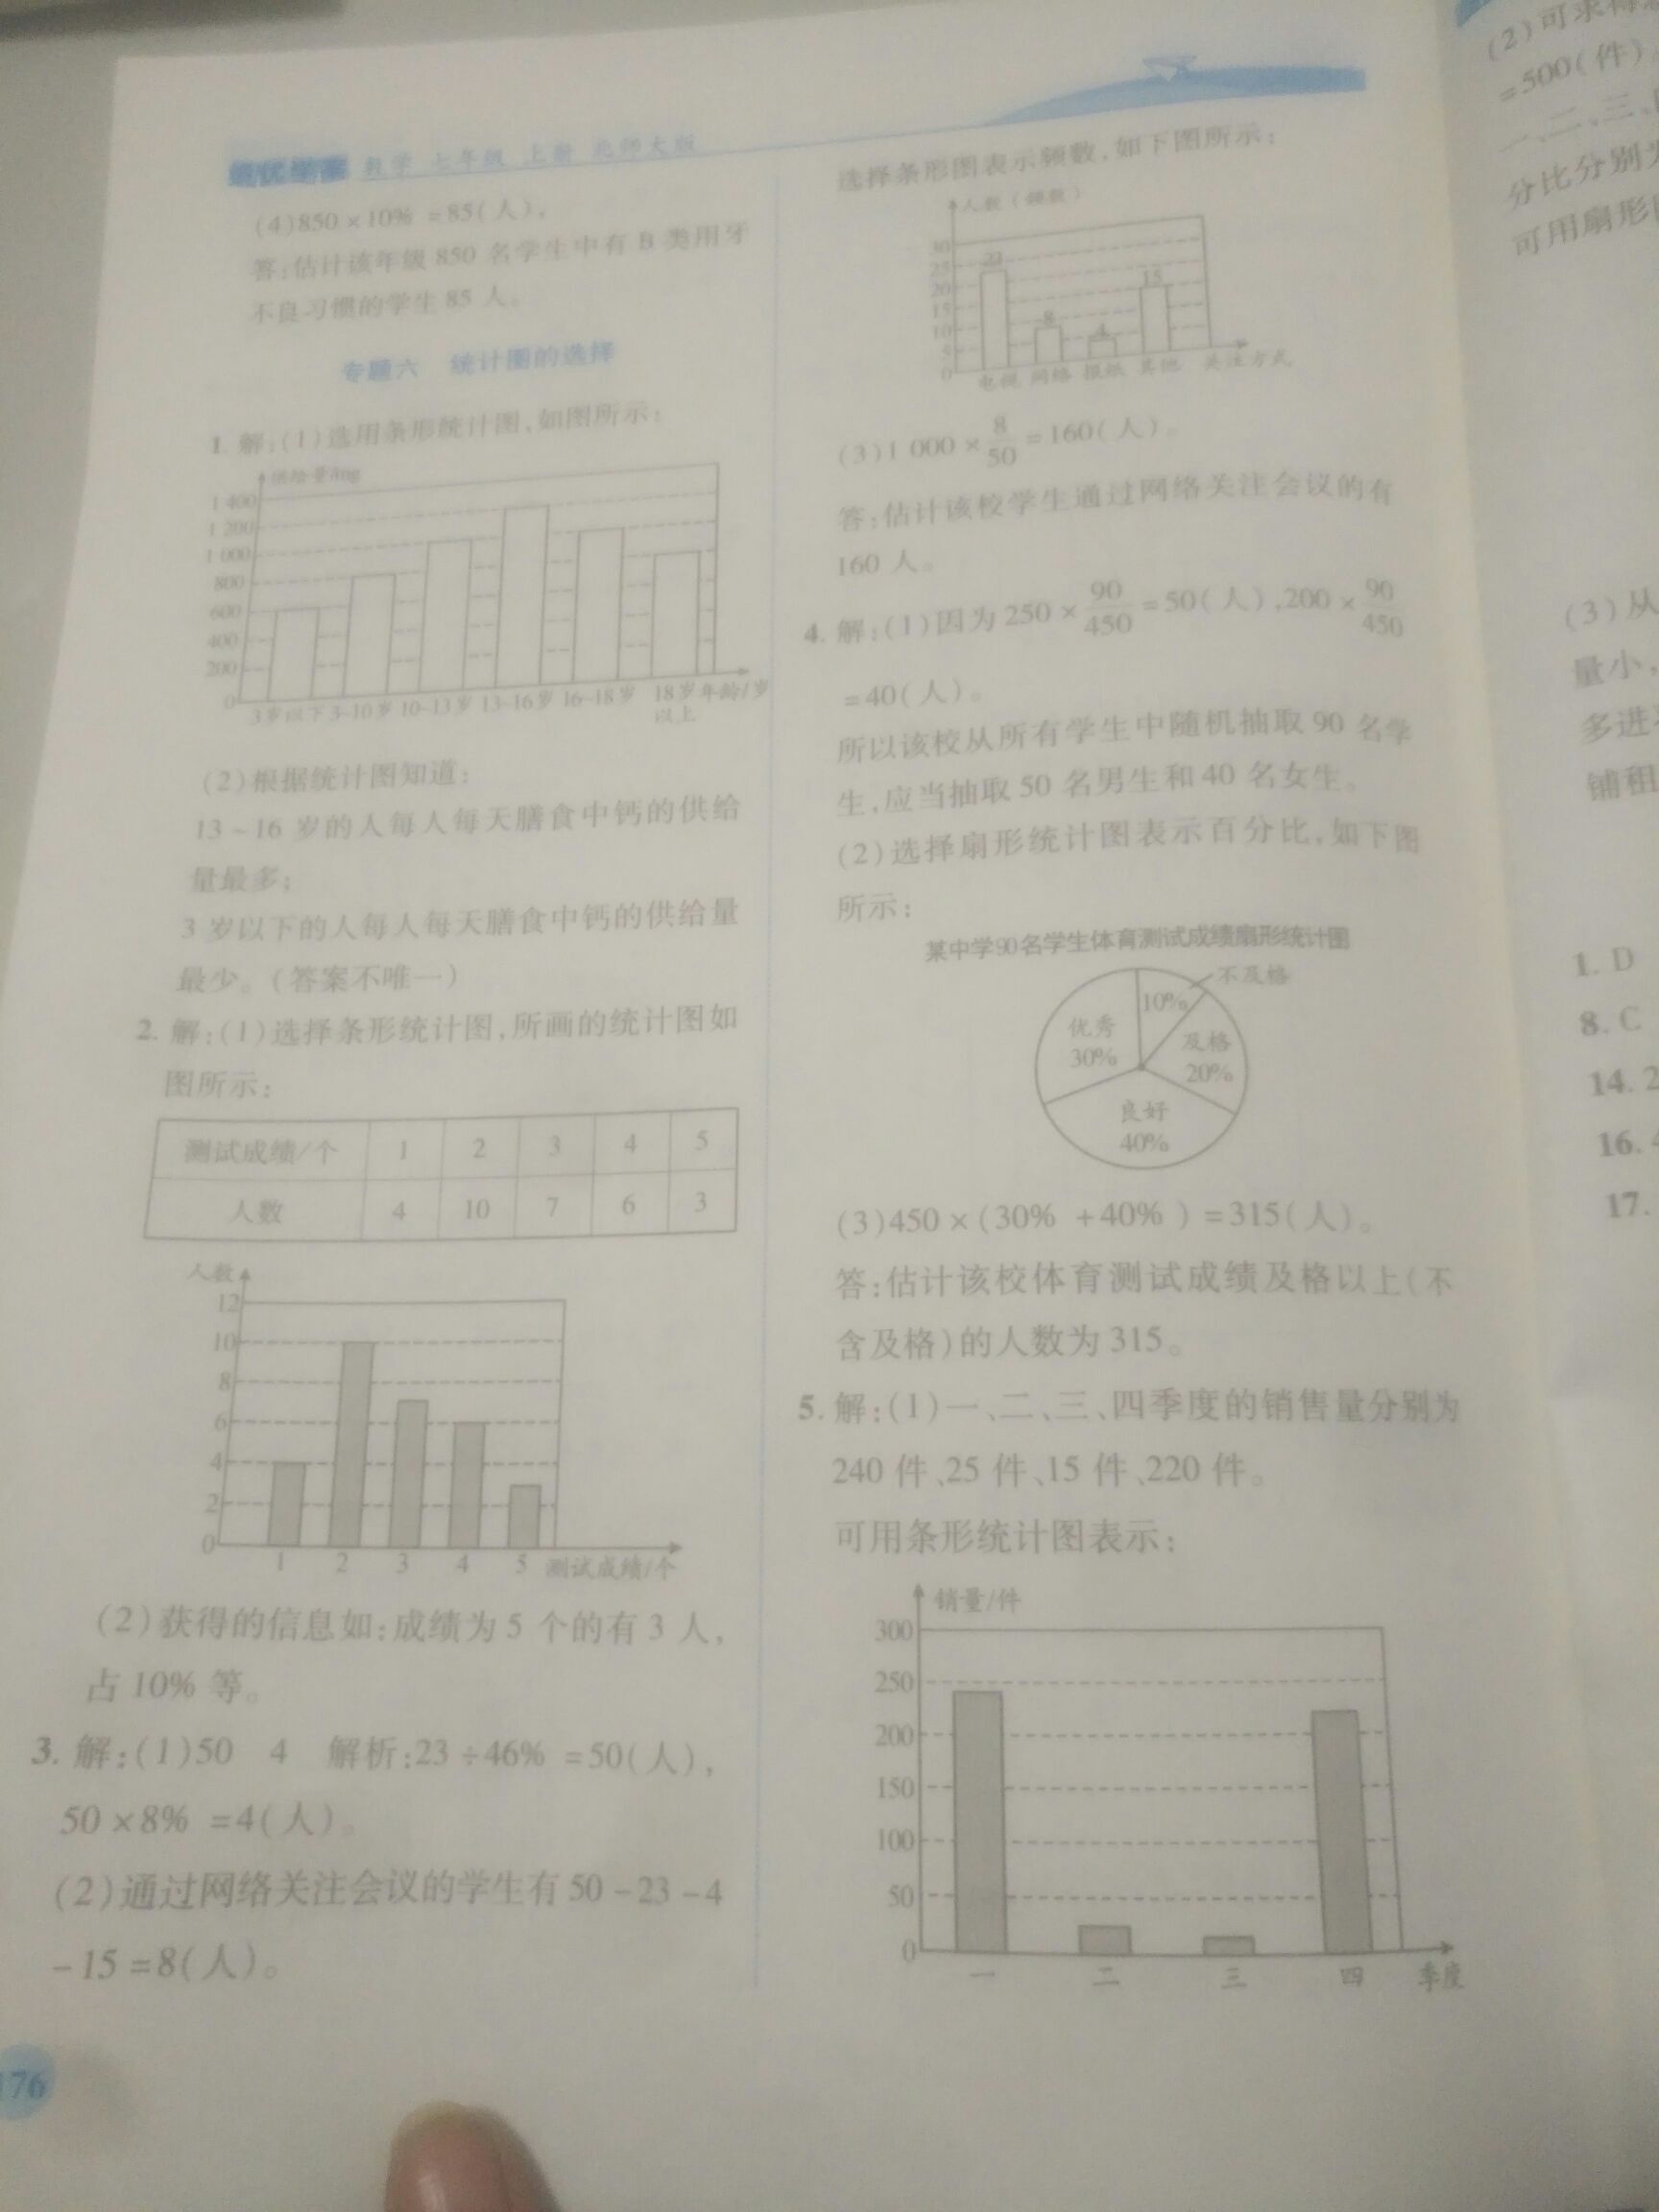 数学 七年级 上册 北师大版
(4)850×10%=85(人),
答:估计该年级 850 名学生中有 B 类用牙
不良习惯的学生 85 人。
专题六 统计图的选择
1. 解:(1)选用条形统计图,如图所示:
供给量/mg
1 400
1 200
1 000
800
600
400
200
0
3岁以下 3-10岁 10-13岁 13-16岁 16-18岁 18岁 年龄/岁
以上
(2)根据统计图知道:
13~16 岁的人每人每天膳食中钙的供给
量最多;
3 岁以下的人每人每天膳食中钙的供给量
最少。(答案不唯一)
2. 解:(1)选择条形统计图,所画的统计图如
图所示:
测试成绩/个 1 2 3 4 5
人数 4 10 7 6 3
人数
12
10
8
6
4
2
0
1 2 3 4 5 测试成绩/个
(2)获得的信息如:成绩为 5 个的有 3 人,
占 10% 等。
3. 解:(1)50 4 解析:23÷46%=50(人),
50×8%=4(人)。
(2)通过网络关注会议的学生有 50-23-4
-15=8(人)。
176
选择条形图表示频数,如下图所示:
人数(频数)
30
25
20
15
10
5
0
23
8
4
15
电视 网络 报纸 其他 关注方式
(3)1 000×8/50=160(人)。
答:估计该校学生通过网络关注会议的有
160 人。
4. 解:(1)因为 250×90/450=50(人),200×90/450
=40(人)。
所以该校从所有学生中随机抽取 90 名学
生,应当抽取 50 名男生和 40 名女生。
(2)选择扇形统计图表示百分比,如下图
所示:
某中学90名学生体育测试成绩扇形统计图
不及格
10%
优秀
30%
及格
20%
良好
40%
(3)450×(30%+40%)=315(人)。
答:估计该校体育测试成绩及格以上(不
含及格)的人数为 315。
5. 解:(1)一、二、三、四季度的销售量分别为
240 件、25 件、15 件、220 件。
可用条形统计图表示:
销量/件
300
250
200
150
100
50
0
一 二 三 四 季度
(2)可求得
=500(件)
一、二、三、
分比分别为
可用扇形
(3)从
量小,
多进
铺租
1. D
8. C
14. 2
16.
17.